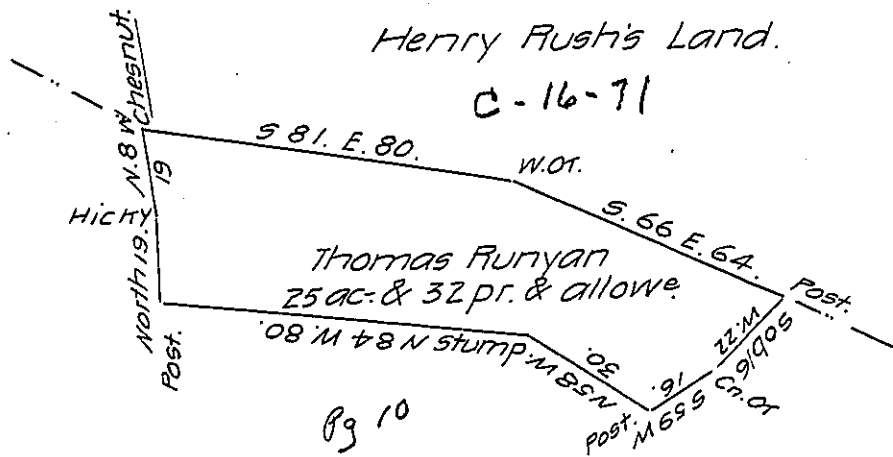 Henry Rush's Land.
C-16-71
Chesnut.
N. 8 W
19
S 81. E. 80.
W.Or.
S. 66 E. 64.
Post.
Hicky
North 19.
Post.
Thomas Runyan
25 ac. & 32 pr. & allowe.
N 84 W. 80.
Stump
N 58 W.
30.
Post.
S 59 W
16.
Cn. Or
W. 22
Pg 10